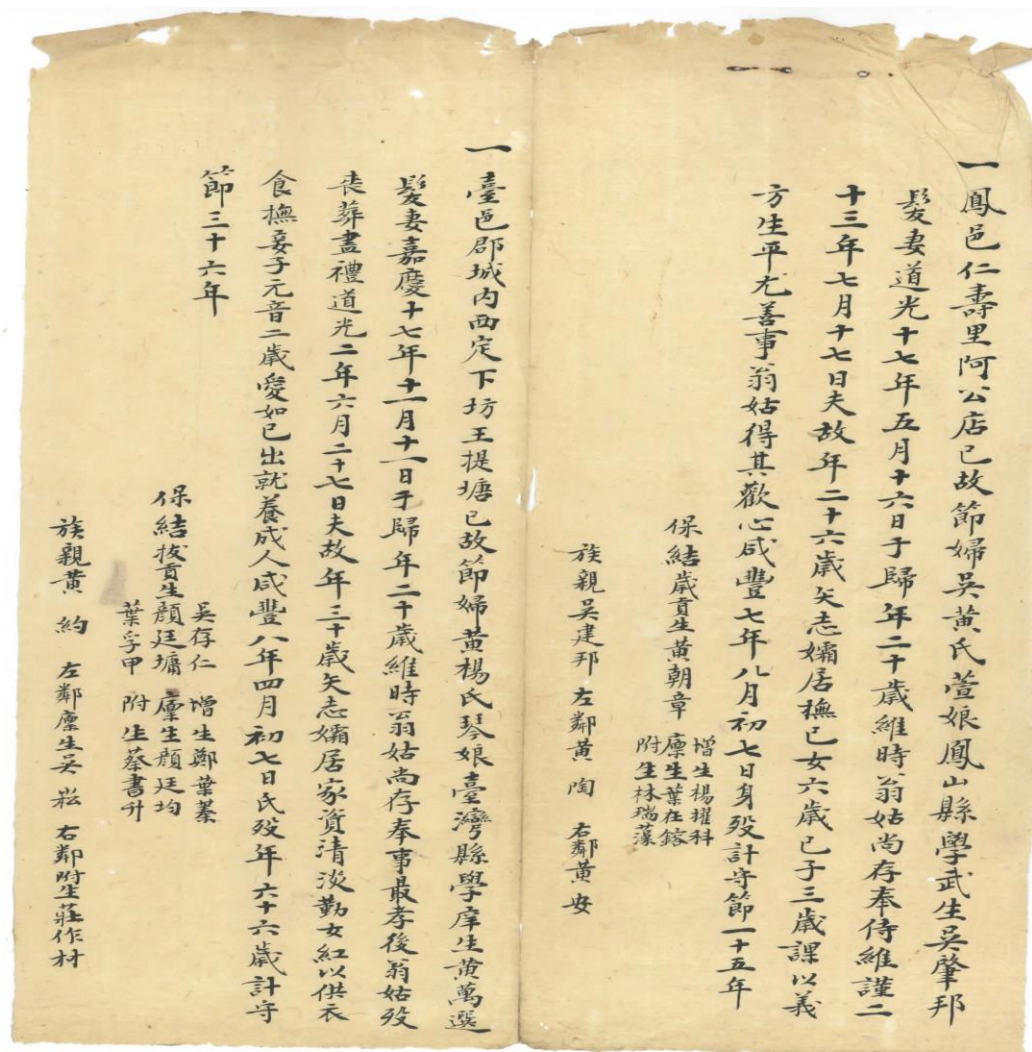 一鳳邑仁壽里阿公店已故節婦吳黃氏萱娘鳳山縣學武生吳肇邦
髮妻道光十七年五月十六日于歸年二十歲維時翁姑尚存奉侍維謹二
十三年七月十七日夫故年二十六歲矢志孀居撫已女六歲已子三歲課以義
方生平尤善事翁姑得其歡心咸豐七年八月初七日身歿計守節一十五年
保結歲貢生黃朝章
增生楊擢科
廩生葉在鎔
附生林瑞藻
族親吳建邦 左鄰黃陶 右鄰黃安
一臺邑郡城內西定下坊王提塘已故節婦黃楊氏琴娘臺灣縣學庠生黃萬選
髮妻嘉慶十七年十一月十一日于歸年二十歲維時翁姑尚存奉事最孝後翁姑歿
丧葬盡禮道光二年六月二十七日夫故年三十歲矢志孀居家資清淡勤女紅以供衣
食撫妾子元音二歲愛如已出就養成人咸豐八年四月初七日氏歿年六十六歲計守
節三十六年
吳存仁 增生鄭葉蓁
保結拔貢生顏廷墉 廩生顏廷均
葉孚甲 附生蔡書升
族親黃約 左鄰廩生吳崧 右鄰附生莊作材